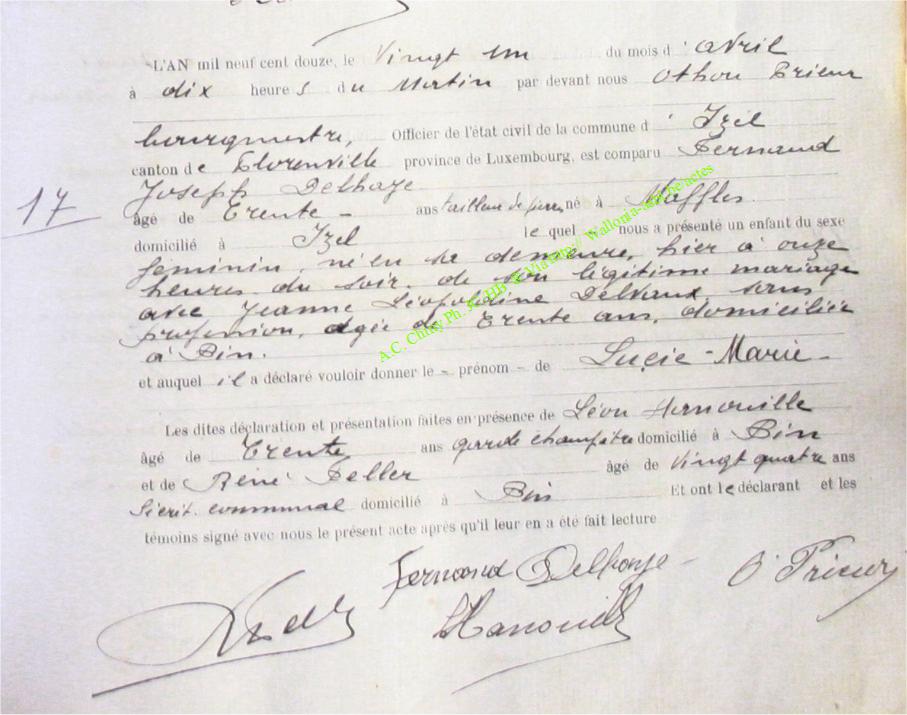 L'AN mil neuf cent douze, le Vingt un du mois d'avril
à dix heures du Matin par devant nous Othon Prieur
bourgmestre, Officier de l'état civil de la commune d'Izel
canton de Florenville province de Luxembourg, est comparu Fernand
Joseph Delhaye
17
âgé de Trente - ans tailleur de pierres né à Maffles
domicilié à Izel lequel nous a présenté un enfant du sexe
féminin, né en sa demeure, hier à onze
heures du soir, de son légitime mariage
avec Jeanne Léopoldine Delvaux, sans
profession, agée de Trente ans, domiciliée
à Pin.
et auquel il a déclaré vouloir donner le - prénom - de Lucie-Marie -
Les dites déclaration et présentation faites en présence de Léon Hanouille
âgé de Trente ans garde champêtre domicilié à Pin
et de René Feller âgé de vingt quatre ans
communal domicilié à Pin Et ont le déclarant et les
témoins signé avec nous le présent acte après qu'il leur en a été fait lecture
Fernand Delhaye
O Prieur
Hanouille
A.C. Chiny Ph.
Wallonia-asbl.be actes